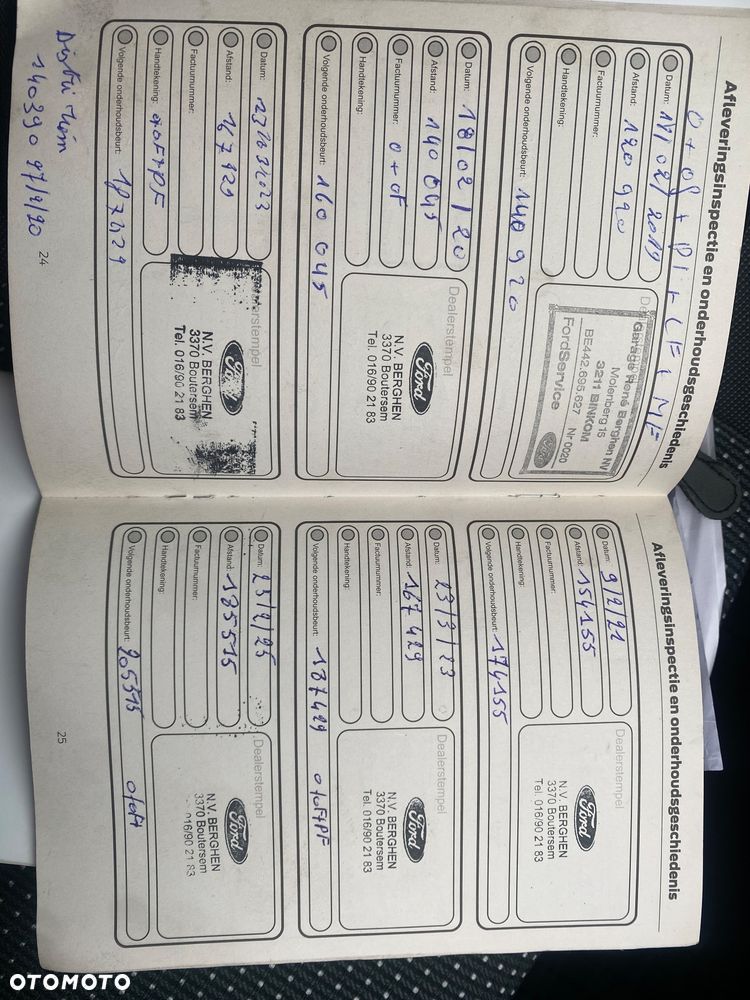 Afleveringsinspectie en onderhoudsgeschiedenis
Datum: 18/02/2019
Afstand: 120 920
Factuurnummer:
Handtekening:
Volgende onderhoudsbeurt: 140 920
Garage René Berghen NV
Molenberg 15
3211 BINKOM
BE442.695.627 Nr 0020
FordService
Ford
Datum: 18/02/20
Afstand: 140 045
Factuurnummer: O + OF
Handtekening:
Volgende onderhoudsbeurt: 160 045
Dealerstempel
Ford
N.V. BERGHEN
3370 Boutersem
Tel. 016/90 21 83
Datum:
Afstand: 167429
Factuurnummer:
Handtekening:
Volgende onderhoudsbeurt: 187429
Ford
N.V. BERGHEN
3370 Boutersem
Tel. 016/90 21 83
140390
24
Afleveringsinspectie en onderhoudsgeschiedenis
Datum: 9/2/21
Afstand: 154155
Factuurnummer:
Handtekening:
Volgende onderhoudsbeurt: 174155
Dealerstempel
Ford
N.V. BERGHEN
3370 Boutersem
Tel. 016/90 21 83
Datum: 23/3/23
Afstand: 167429
Factuurnummer:
Handtekening:
Volgende onderhoudsbeurt: 187429
Dealerstempel
Ford
N.V. BERGHEN
3370 Boutersem
Tel. 016/90 21 83
Datum: 25/2/25
Afstand: 185515
Factuurnummer:
Handtekening:
Volgende onderhoudsbeurt: 205515
Dealerstempel
Ford
N.V. BERGHEN
3370 Boutersem
016/90 21 83
25
OTOMOTO